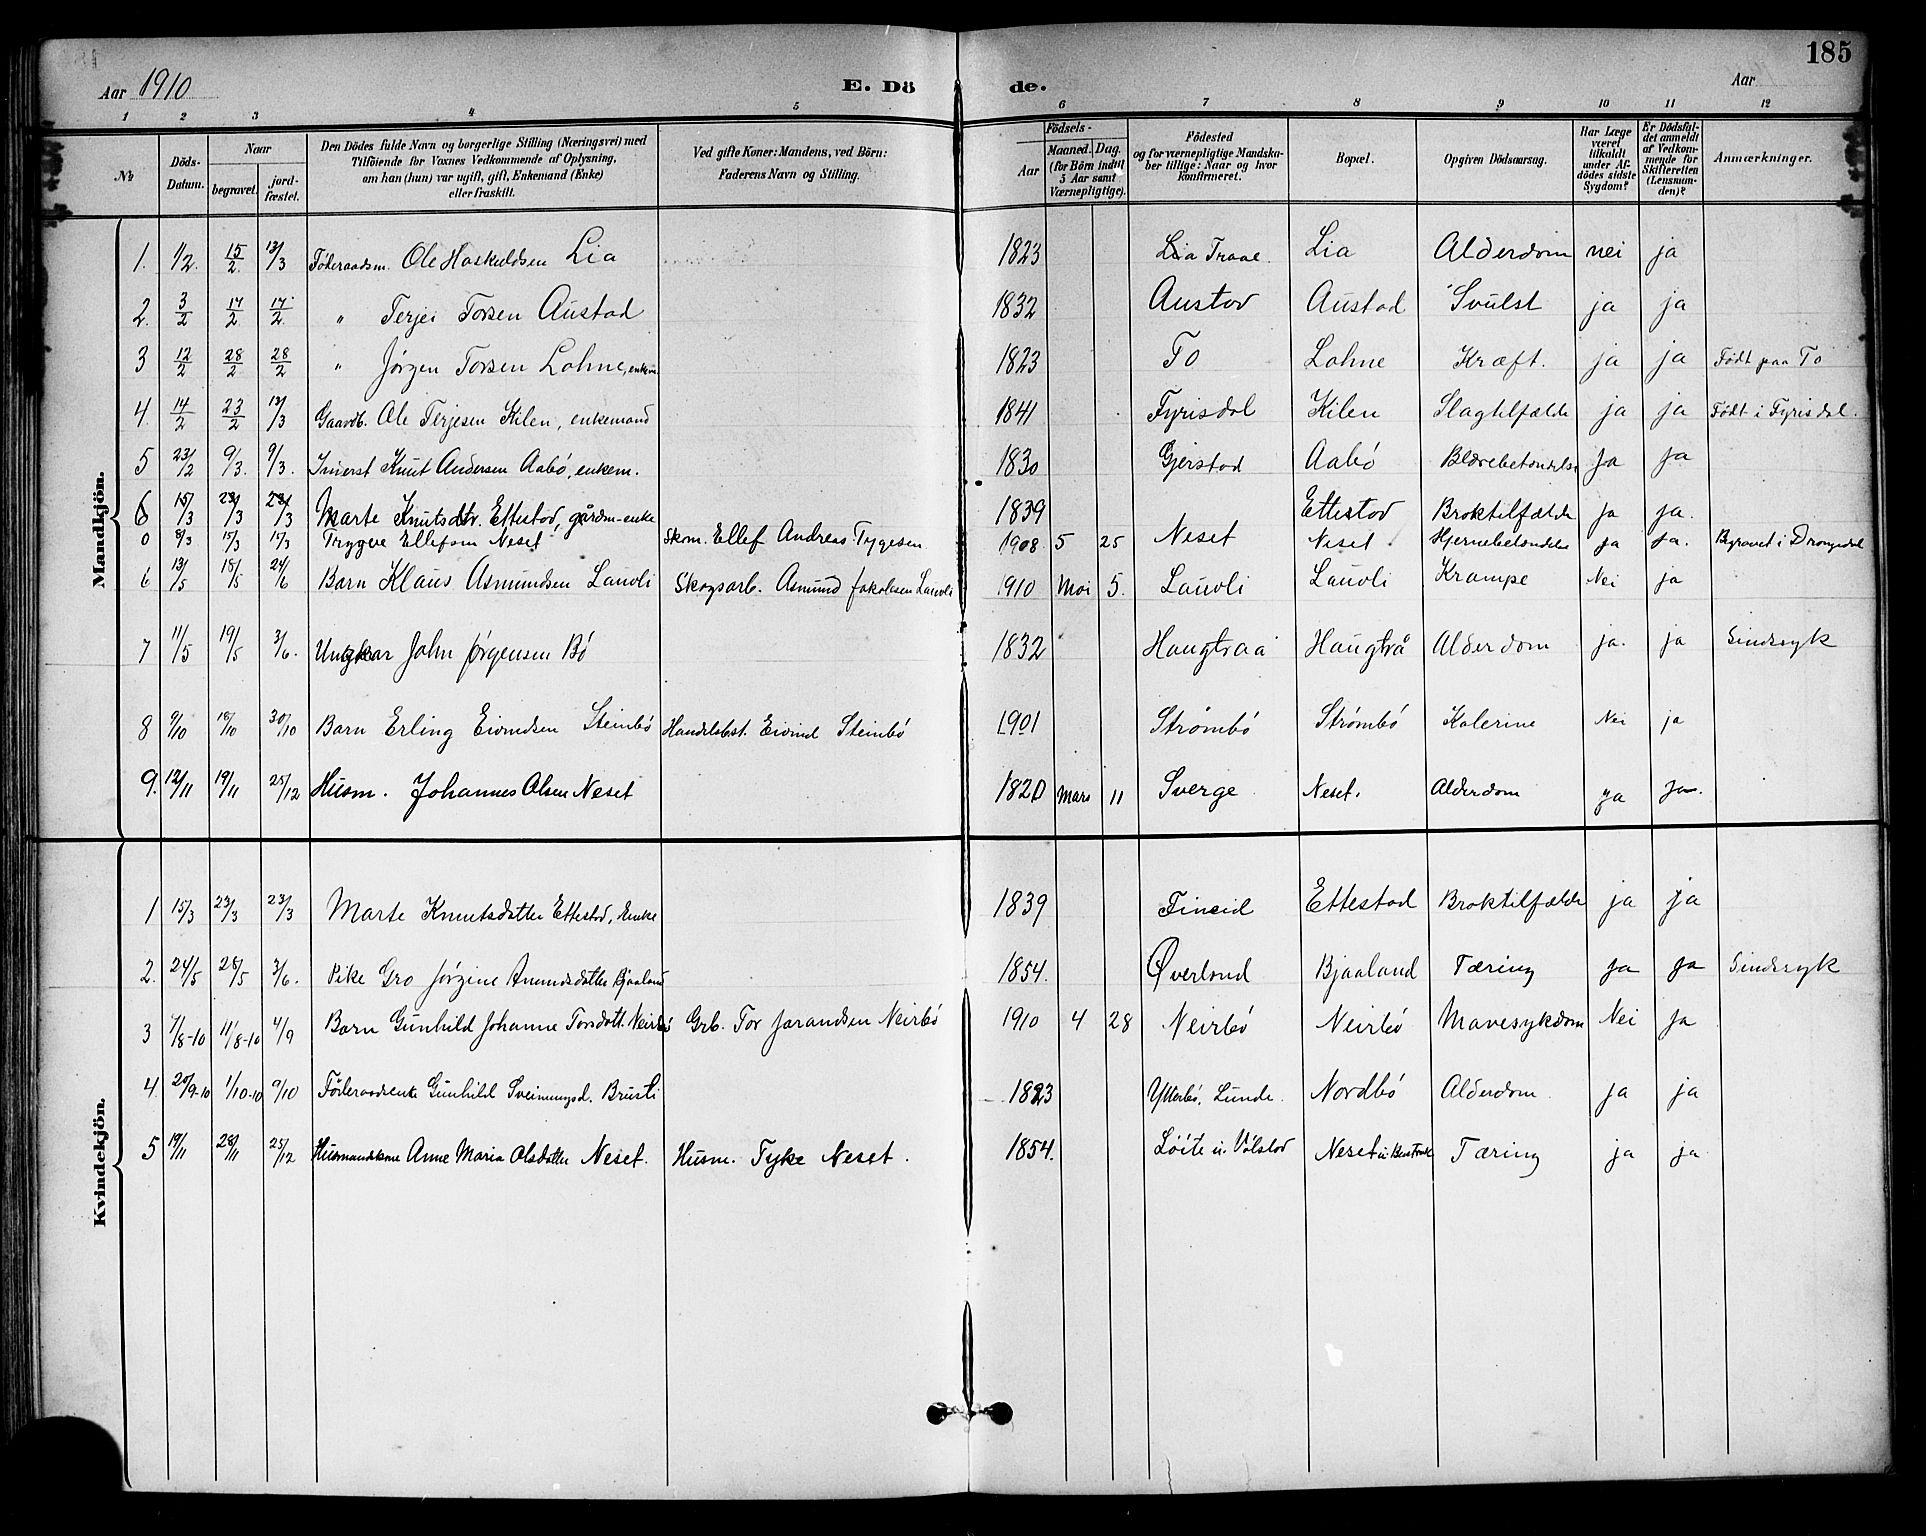 185
Aar 1910 E. Dö de. Aar
1 2 3 4 5 6 7 8 9 10 11 12
No
Döds-Datum.
Naar
begravet.
jordfæstet.
Den Dödes fulde Navn og borgerlige Stilling (Næringsvei) med
Tilföiende for Voxnes Vedkommende af Oplysning,
om han (hun) var ugift, gift, Enkemand (Enke)
eller fraskilt.
Ved gifte Koner: Mandens, ved Börn:
Faderens Navn og Stilling.
Födsels-
Aar
Maaned. Dag.
(for Börn indtil
5 Aar samt
Værnepligtige).
Födested
og for værnepligtige Mandskaber tillige: Naar og hvor
konfirmeret.
Bopæl.
Opgiven Dödsaarsag.
Har Læge været tilkaldt under Afdödes sidste Sygdom?
Er Dödsfaldet anmeldt af Vedkommende for Skifteretten (Lensmanden)?
Anmærkninger.
Mandkjön.
1. 1/2. 15/2. 13/3 Föderaadsm. Ole Haskuldsen Lia 1823 Lia Traae. Lia Alderdom nei ja
2. 3/2 17/2 17/2 " Terjei Torsen Austad 1832 Austad Austad Svulst ja ja
3 12/2 28/2 28/2 " Jørgen Torsen Lohne, enkem 1823 To Lohne Kræft. ja ja Födt paa To
4. 14/2 23/2 13/3 Gaardb. Ole Terjesen Kilen, enkemand 1841 Fyrisdal Kilen Slagtilfælde ja ja Födt i Fyrisdal.
5 23/2 9/3. 9/3. Inderst Knut Andersen Aabö, enkem. 1830 Gjerstad Aabö Blærebetændelse ja ja
6 15/3 23/3 23/3 Marte Knutsdtr. Ettestad, gårdm-enke 1839 Ettestad Broktilfælde ja ja.
0 8/3 15/3 15/3 Trygve Ellefsøn Neset Skom. Ellef Andreas Tygesen 1908. 5 25 Neset Neset Hjernebetændelse ja ja. Begravet i Drangedal
6 13/5 18/5 24/6 Barn Klaus Asmundsen Lauvli Skogsarb. Asmund Jakobsen Lauvli 1910 Mai 5. Lauvli Lauvli Krampe Nei ja
7 11/5 19/5 3/6. Ungkar John Jørgensen Bö 1832 Haugtraa Haugtrå Alderdom ja. ja Sindssyk
8 9/10 18/10 30/10 Barn Erling Eivindsen Steinbö Handelsbst. Eivind Steinbö 1901 Strömbö Strömbö Kolerine Nei ja
9. 12/11 19/11 25/12 Husm. Johannes Olsen Neset 1820 Mars 11 Sverge Neset. Alderdom ja ja.
Kvindekjön.
1 15/3 23/3 23/3 Marte Knutsdatter Ettestad, Enke 1839 Fineid Ettestad Broktilfælde ja ja
2. 24/5 28/5 3/6. Pike Gro Jørgine Amundsdatter Bjaaland 1854. Øverland Bjaaland Tæring ja ja Sindssyk
3 7/8-10 11/8-10 4/9 Barn Gunhild Johanne Torsdatt. Neirbö Grb. Tor Jarandsen Neirbö 1910 4 28 Neirbö Neirbö Mavesykdom Nei ja
4. 20/9-10 1/10-10 9/10 Föderaadsenke Gunhild Sveinungsd. Brusli 1823 Ytterbö, Lunde. Nordbö Alderdom ja ja
5 19/11 28/11 25/12 Husmandskone Anne Maria Olsdatter Neset. Husm. Tyke Neset. 1854. Löite u. Völstad Neset u. Tæring ja ja